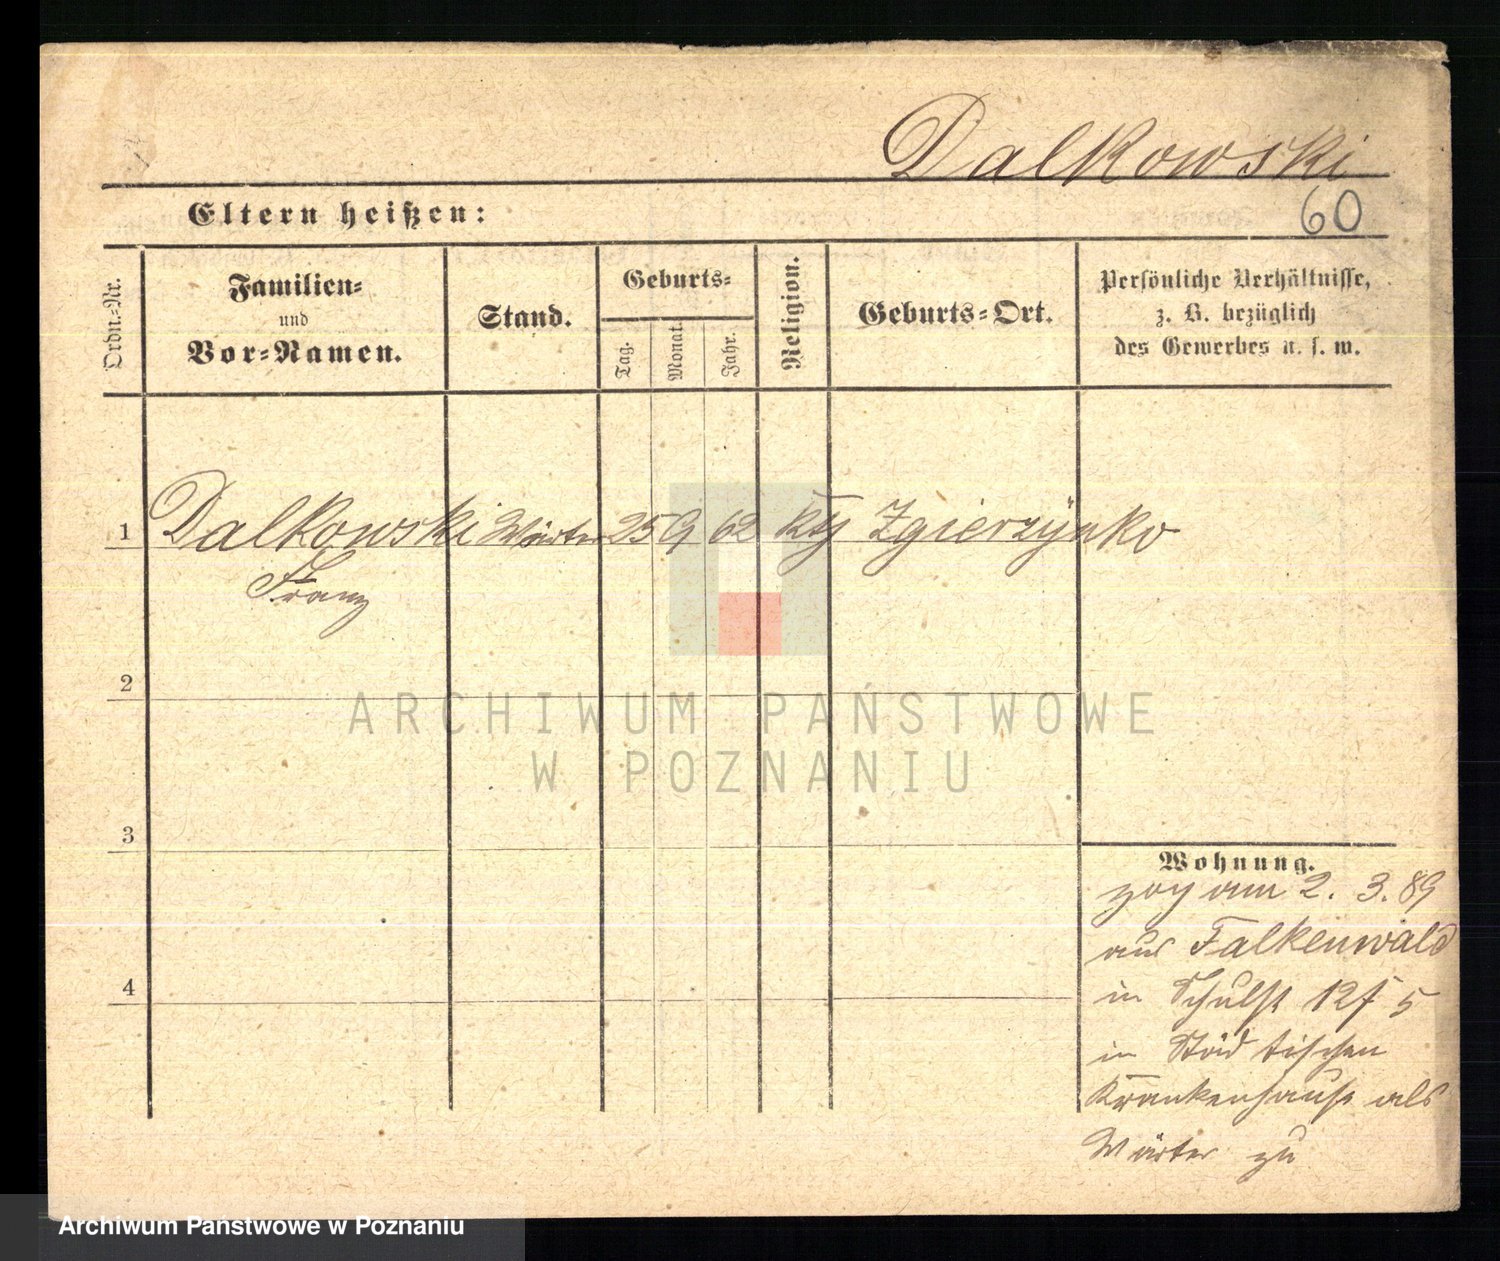 Dalkowski
Eltern heißen:
60
Ordn.-Nr.
Familien-
und
Vor-Namen.
Stand.
Geburts-
Tag.
Monat.
Jahr.
Religion.
Geburts-Ort.
Persönliche Verhältnisse,
z. B. bezüglich
des Gewerbes u. s. w.
1 Dalkowski Wärter 25 9 62 kth Zgierzynko
Franz
2
3
4
Wohnung.
zog am 2. 3. 89
aus Falkenwald
in Schulst 12 f 5
in Städtischen
Krankenhause als
Wärter zu
ARCHIWUM PAŃSTWOWE
W POZNANIU
Archiwum Państwowe w Poznaniu